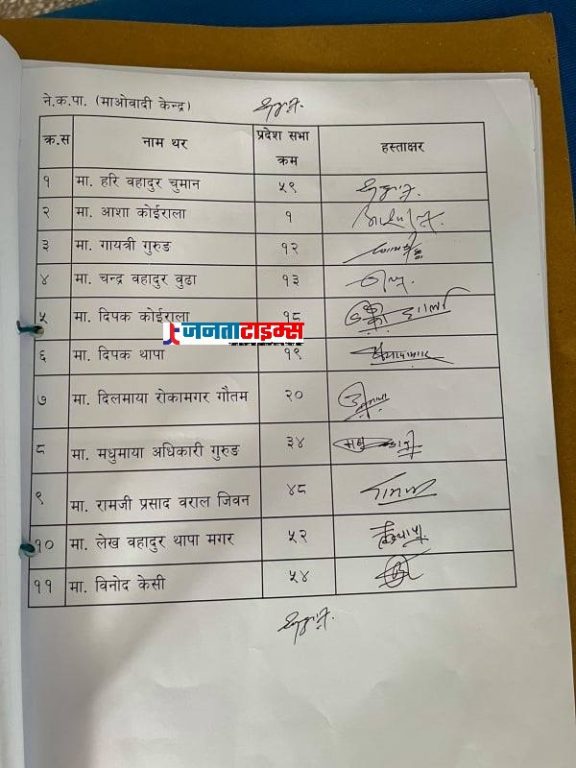 ने.क.पा. (माओवादी केन्द्र)
क्र.स नाम थर प्रदेश सभा क्रम हस्ताक्षर
१ मा. हरि वहादुर चुमान ५९
२ मा. आशा कोईराला १
३ मा. गायत्री गुरुङ १२
४ मा. चन्द्र वहादुर वुढा १३
५ मा. दिपक कोईराला १८
जनताटाइम्स
६ मा. दिपक थापा १९
७ मा. दिलमाया रोकामगर गौतम २०
८ मा. मधुमाया अधिकारी गुरुङ ३४
९ मा. रामजी प्रसाद वराल जिवन ४८
१० मा. लेख वहादुर थापा मगर ५२
११ मा. विनोद केसी ५४